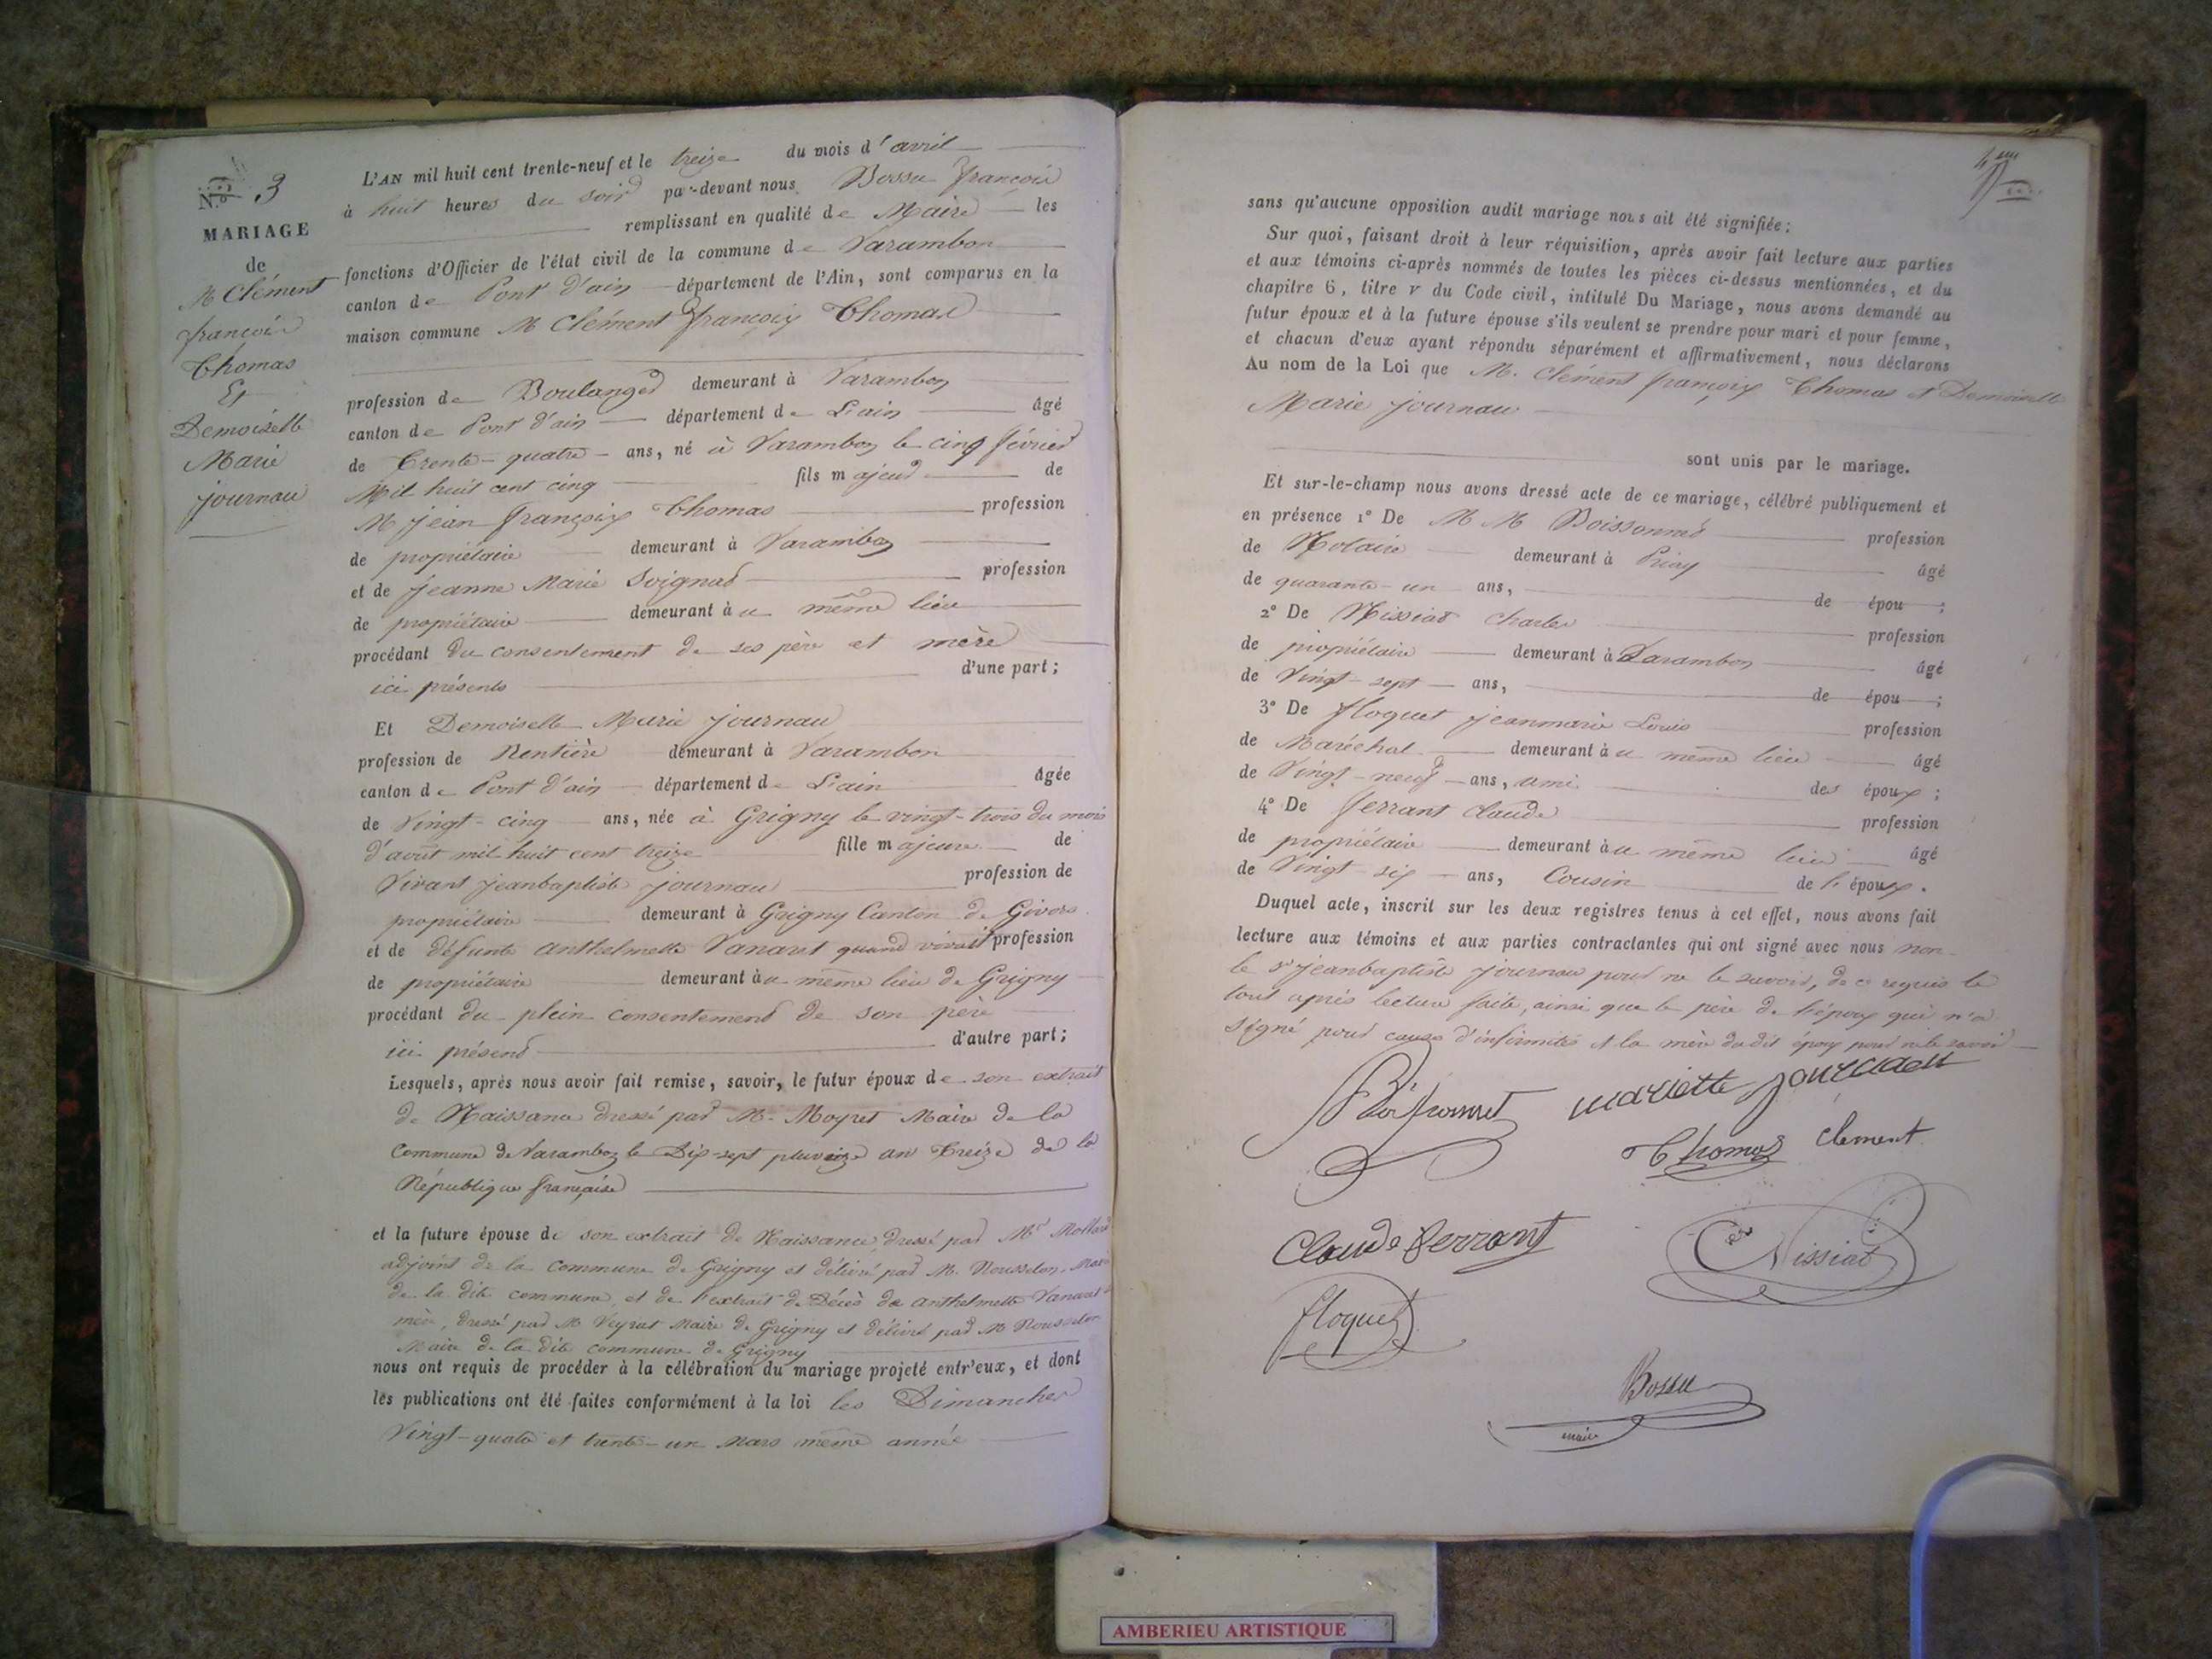 N.° 3
MARIAGE
de
M Clément
françois
Thomas
Et
Demoiselle
Marie
journau
L'AN mil huit cent trente-neuf et le treize du mois d'avril
à huit heures du soir par-devant nous Bossu françois
remplissant en qualité de Maire les
fonctions d'Officier de l'état civil de la commune de Varambon
canton de Pont d'ain département de l'Ain, sont comparus en la
maison commune M Clément françois Thomas
profession de Boulanger demeurant à Varambon
canton de Pont d'ain département de L'ain âgé
de Trente-quatre ans, né à Varambon le cinq février
Mil huit cent cinq fils majeur de
M jean françois Thomas profession
de propriétaire demeurant à Varambon
et de jeanne Marie Soignad profession
de propriétaire demeurant au même lieu
procédant du consentement de ses père et mère
ici présents d'une part;
Et Demoiselle Marie journau
profession de Rentière demeurant à Varambon
canton de Pont d'ain département de L'ain âgée
de Vingt-cinq ans, née à Grigny le vingt-trois du mois
d'août mil huit cent treize fille majeure de
Vivant jeanbaptiste journau profession de
propriétaire demeurant à Grigny Canton de Givors
et de défunte anthelmette Vanaret quand vivait profession
de propriétaire demeurant au même lieu de Grigny
procédant du plein consentement de son père
ici présend d'autre part;
Lesquels, après nous avoir fait remise, savoir, le futur époux de son extrait
de Naissance dressé par M. Moyret Maire de la
Commune de Varambon le Dix-sept pluvoize an Treize de la
République française
et la future épouse de son extrait de Naissance, dressé par Mr Mollard
adjoint de la commune de Grigny et délivré par M. Rousselon, Maire
de la dite commune, et de l'extrait de Décès de anthelmette Vanaret
mère, dressé par M Veyrat Maire de Grigny et délivré par M Rousselon
Maire de la dite commune de Grigny
nous ont requis de procéder à la célébration du mariage projeté entr'eux, et dont
les publications ont été faites conformément à la loi les Dimanches
Vingt-quatre et trente-un Mars même année
sans qu'aucune opposition audit mariage nous ait été signifiée;
Sur quoi, faisant droit à leur réquisition, après avoir fait lecture aux parties
et aux témoins ci-après nommés de toutes les pièces ci-dessus mentionnées, et du
chapitre 6, titre v du Code civil, intitulé Du Mariage, nous avons demandé au
futur époux et à la future épouse s'ils veulent se prendre pour mari et pour femme,
et chacun d'eux ayant répondu séparément et affirmativement, nous déclarons
Au nom de la Loi que M. Clément françois Thomas et Demoiselle
Marie journau
sont unis par le mariage.
Et sur-le-champ nous avons dressé acte de ce mariage, célébré publiquement et
en présence 1° De M M Boissonnet profession
de Notaire demeurant à Priay âgé
de quarante-un ans, de épou ;
2° De Nissiat Charles profession
de propriétaire demeurant à Varambon âgé
de Vingt-sept ans, de épou ;
3° De floquet jeanmarie Louis profession
de Maréchal demeurant au même lieu âgé
de Vingt-neuf ans, ami des époux ;
4° De ferrant Claude profession
de propriétaire demeurant au même lieu âgé
de Vingt-six ans, Cousin de l'époux.
Duquel acte, inscrit sur les deux registres tenus à cet effet, nous avons fait
lecture aux témoins et aux parties contractantes qui ont signé avec nous non
le sr jeanbaptiste journau pour ne le savoir, de ce requis le
tout après lecture faite, ainsi que le père de l'époux qui n'a
signé pour cause d'infirmités et la mère du dit époux pour ne le savoir
Boissonnet
mariette journau
Thomas Clement
Claude ferrant
Nissiat
floquet
Bossu
maire
AMBERIEU ARTISTIQUE